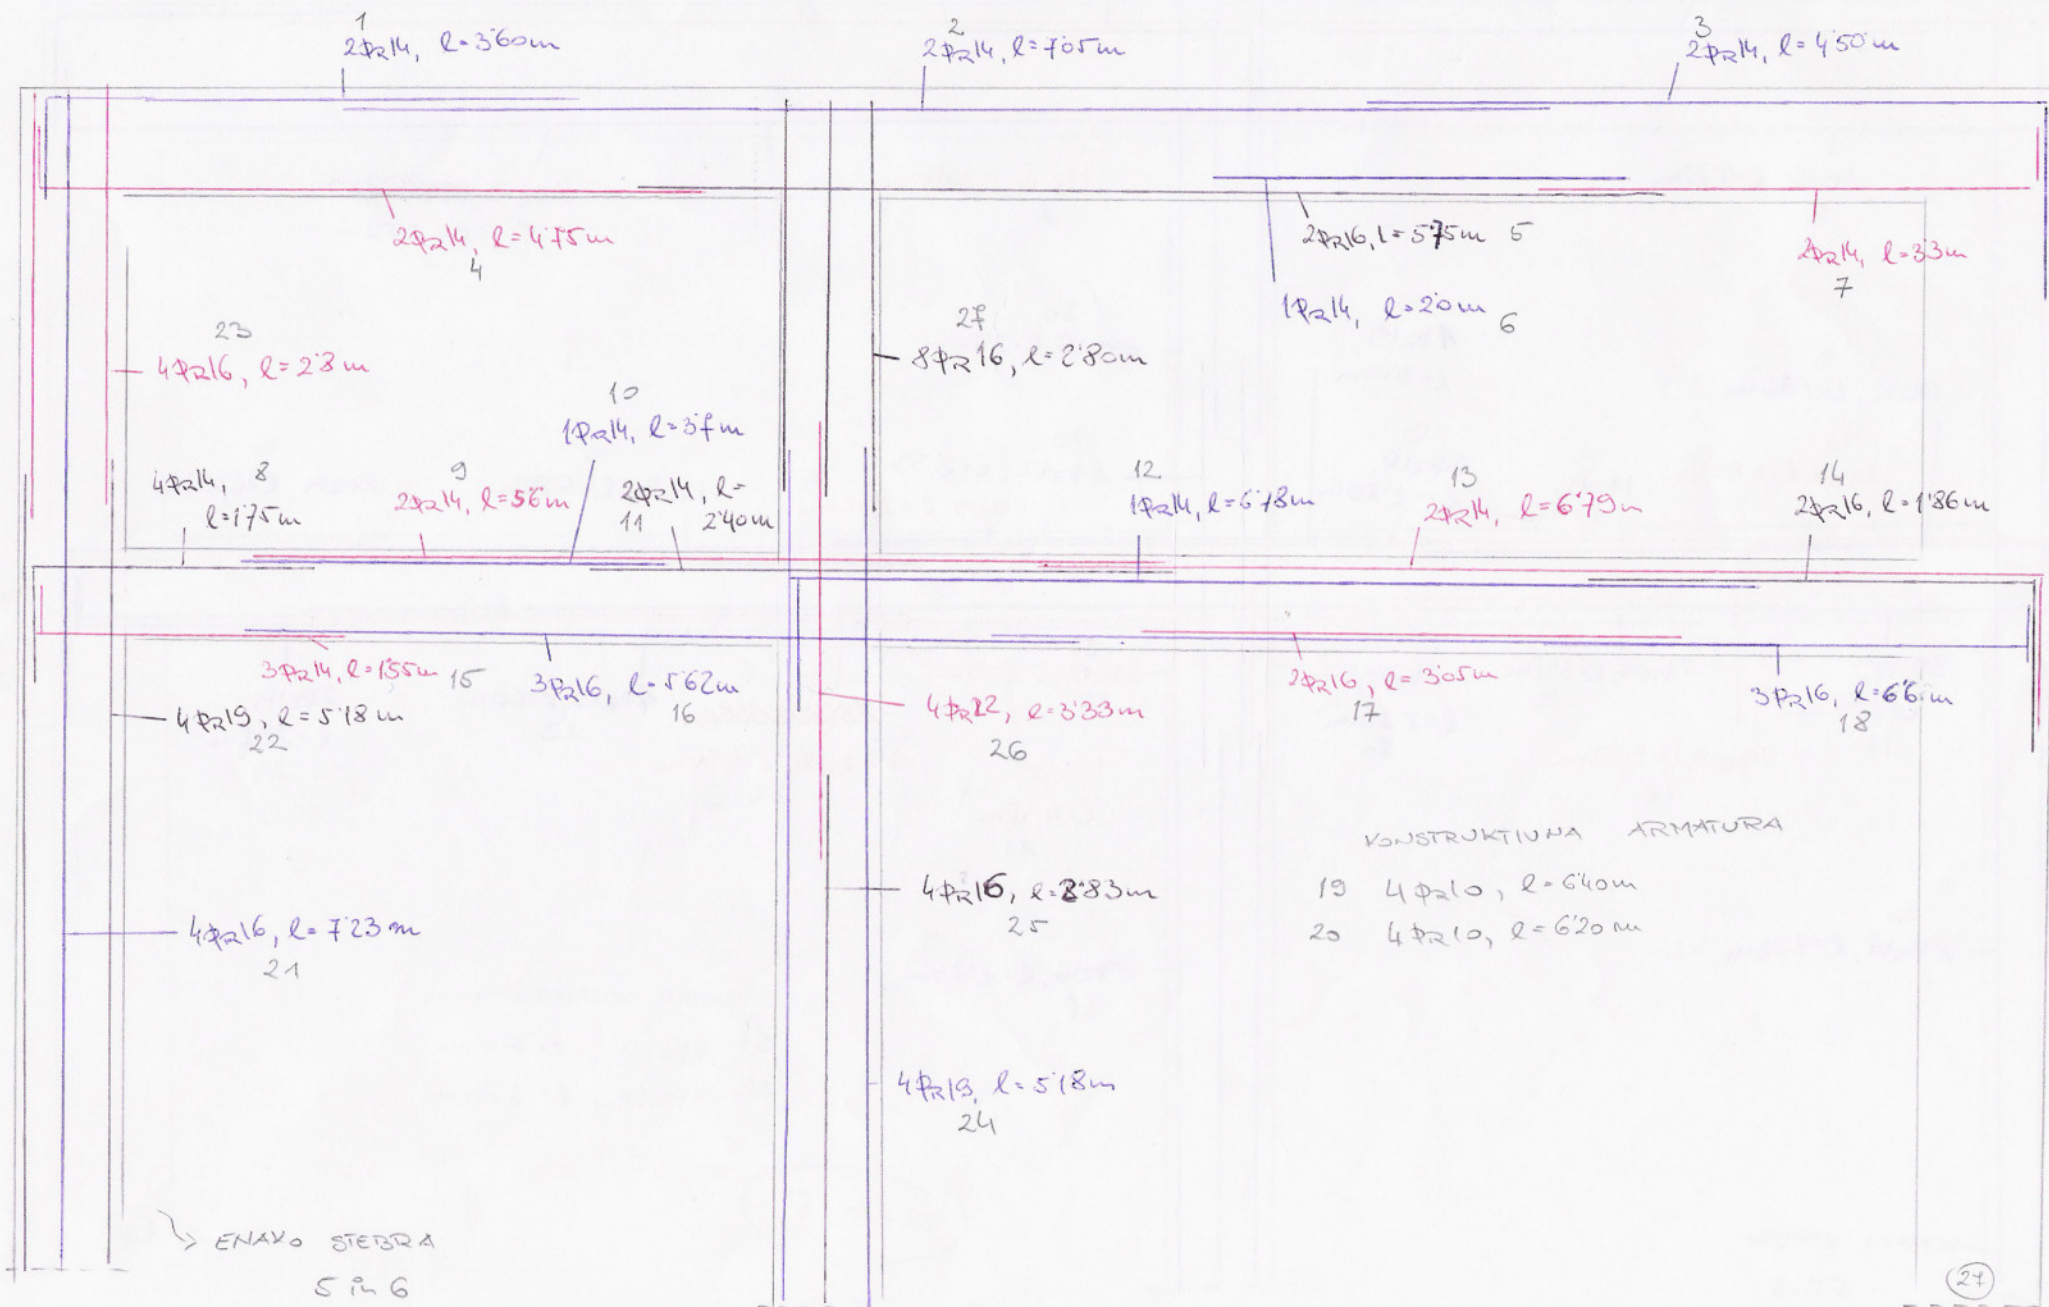 1
2ΦR14, l=3'60m
2
2ΦR14, l=7'05m
3
2ΦR14, l=4'50m
2ΦR14, l=4'75m
4
2ΦR16, l=5'75m 5
2ΦR14, l=3'3m
7
1ΦR14, l=2'0m 6
23
4ΦR16, l=2'8m
27
8ΦR16, l=2'80m
10
1ΦR14, l=3'7m
4ΦR14, 8
l=1'75m
9
2ΦR14, l=5'6m
2ΦR14, l=
11 2'40m
12
1ΦR14, l=6'78m
13
2ΦR14, l=6'79m
14
2ΦR16, l=1'86m
3ΦR14, l=1'55m 15
3ΦR16, l=5'62m
16
2ΦR16, l=3'05m
17
3ΦR16, l=6'6m
18
4ΦR19, l=5'18m
22
4ΦR22, l=3'33m
26
KONSTRUKTIVNA ARMATURA
19 4ΦR10, l=6'40m
20 4ΦR10, l=6'20m
4ΦR16, l=7'23m
21
4ΦR16, l=2'83m
25
4ΦR19, l=5'18m
24
ENAKO STEBRA
5 in 6
27